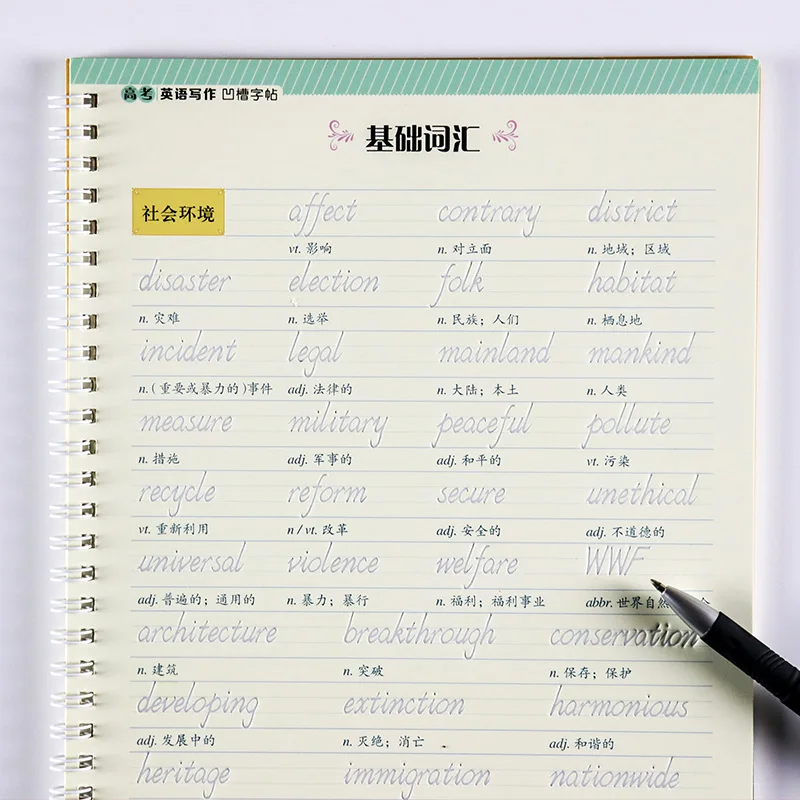 高考 英语写作 凹槽字帖
基础词汇
社会环境 affect contrary district
vt. 影响 n. 对立面 n. 地域；区域
disaster election folk habitat
n. 灾难 n. 选举 n. 民族；人们 n. 栖息地
incident legal mainland mankind
n.(重要或暴力的)事件 adj. 法律的 n. 大陆；本土 n. 人类
measure military peaceful pollute
n. 措施 adj. 军事的 adj. 和平的 vt. 污染
recycle reform secure unethical
vt. 重新利用 n/vt. 改革 adj. 安全的 adj. 不道德的
universal violence welfare WWF
adj. 普遍的；通用的 n. 暴力；暴行 n. 福利；福利事业 abbr. 世界自然
architecture breakthrough conservation
n. 建筑 n. 突破 n. 保存；保护
developing extinction harmonious
adj. 发展中的 n. 灭绝；消亡 adj. 和谐的
heritage immigration nationwide